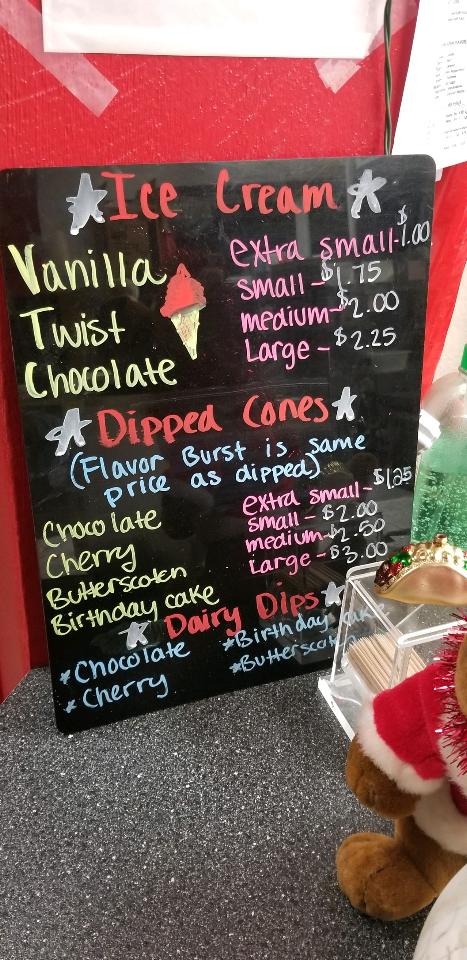 Ice Cream
Vanilla
Twist
Chocolate
extra small - $1.00
small - $1.75
medium - $2.00
Large - $2.25
Dipped Cones
(Flavor Burst is same
price as dipped)
Chocolate
Cherry
Butterscotch
Birthday cake
extra small - $1.25
small - $2.00
medium - $2.50
Large - $3.00
Dairy Dips
*Chocolate
*Cherry
*Birthday cake
*Butterscotch